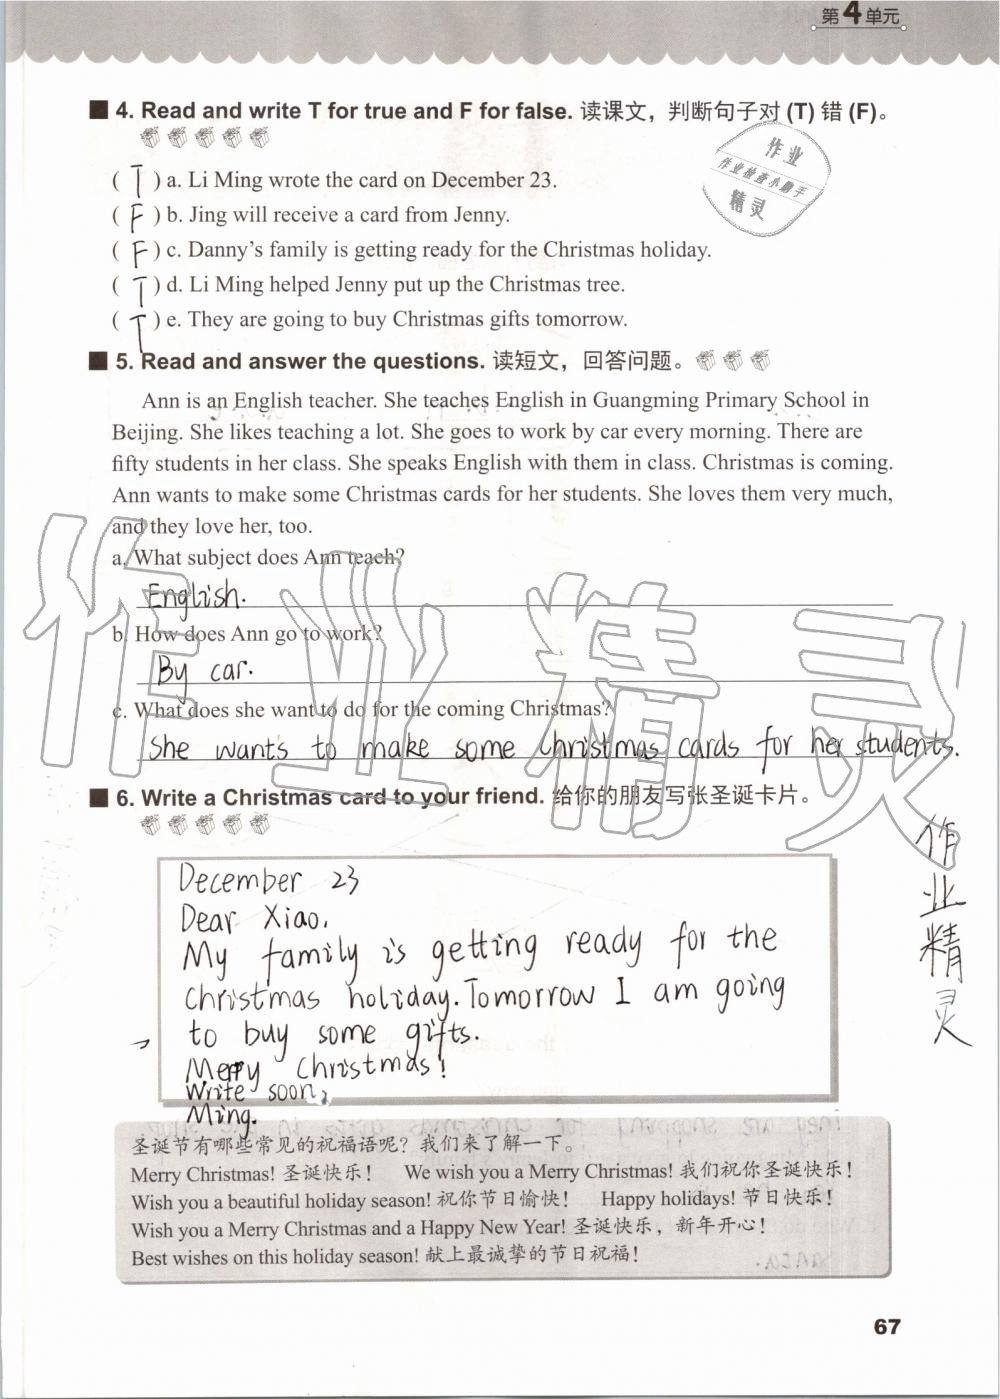 第4单元
4. Read and write T for true and F for false. 读课文，判断句子对 (T) 错 (F)。
作业
作业检查小助手
精灵
( T ) a. Li Ming wrote the card on December 23.
( F ) b. Jing will receive a card from Jenny.
( F ) c. Danny's family is getting ready for the Christmas holiday.
( T ) d. Li Ming helped Jenny put up the Christmas tree.
( T ) e. They are going to buy Christmas gifts tomorrow.
5. Read and answer the questions. 读短文，回答问题。
Ann is an English teacher. She teaches English in Guangming Primary School in
Beijing. She likes teaching a lot. She goes to work by car every morning. There are
fifty students in her class. She speaks English with them in class. Christmas is coming.
Ann wants to make some Christmas cards for her students. She loves them very much,
and they love her, too.
a. What subject does Ann teach?
English.
b. How does Ann go to work?
By car.
c. What does she want to do for the coming Christmas?
She wants to make some Christmas cards for her students.
作业精灵
6. Write a Christmas card to your friend. 给你的朋友写张圣诞卡片。
December 23
Dear Xiao,
My family is getting ready for the
Christmas holiday. Tomorrow I am going
to buy some gifts.
Merry Christmas!
Write soon,
Ming.
作业精灵
圣诞节有哪些常见的祝福语呢？我们来了解一下。
Merry Christmas! 圣诞快乐！ We wish you a Merry Christmas! 我们祝你圣诞快乐！
Wish you a beautiful holiday season! 祝你节日愉快！ Happy holidays! 节日快乐！
Wish you a Merry Christmas and a Happy New Year! 圣诞快乐，新年开心！
Best wishes on this holiday season! 献上最诚挚的节日祝福！
67